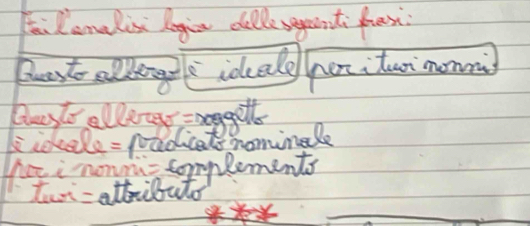 Fai l'analisi logica delle seguenti frasi:
Questo albergo è ideale per i tuoi nonni
Questo albergo = soggetto
è ideale = predicato nominale
per i nonni = complemento
tuoi = attributo
***